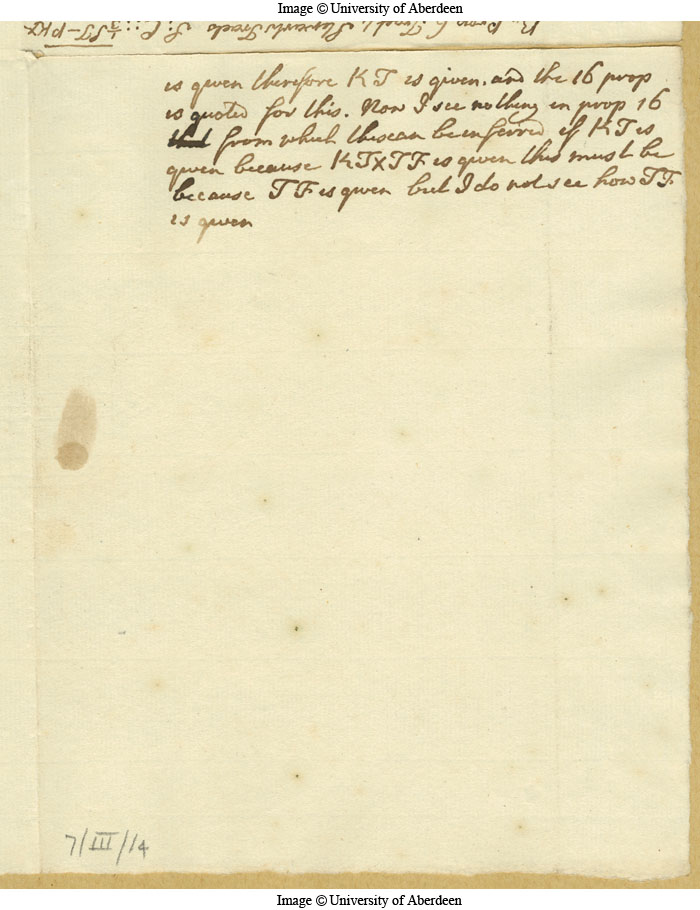 Image © University of Aberdeen
By Prop 6
is given therefore KT is given. and the 16 prop
is quoted for this. Now I see nothing in prop 16
from which this can be inferred if KT is
given because KT×TF is given this must be
because TF is given but I do not see how TF
is given
7/III/14
Image © University of Aberdeen